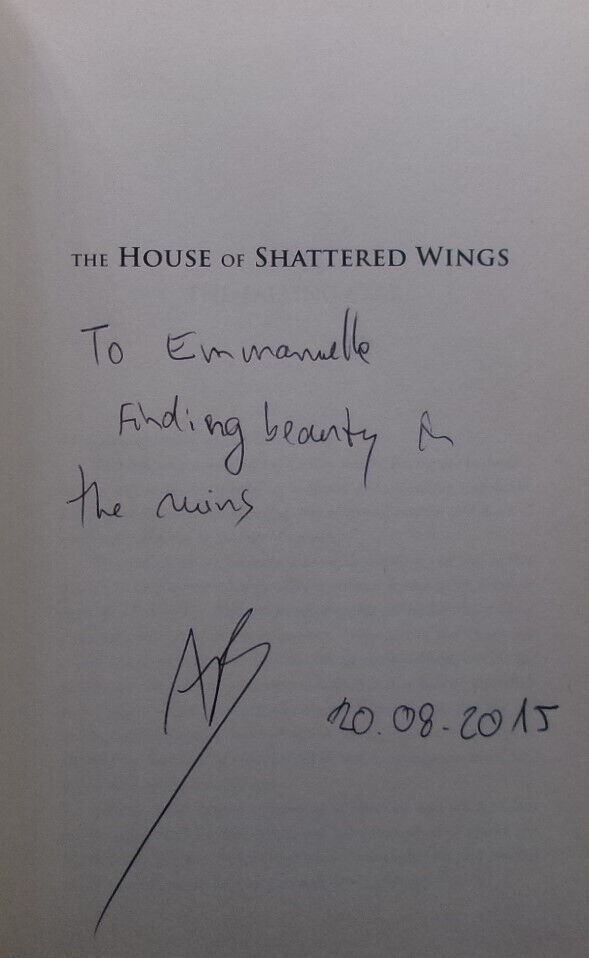 THE HOUSE OF SHATTERED WINGS
To Emmanuelle
Finding beauty in
the ruins
AB
20.08.2015